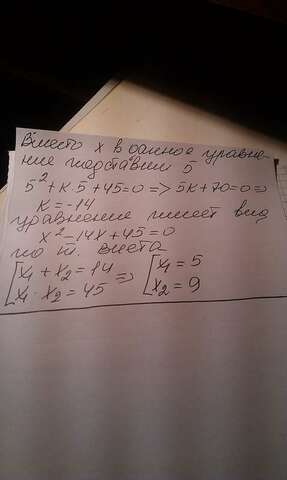 Вместо x в данное уравне-
ние подставим 5
5² + k·5 + 45 = 0 => 5k + 70 = 0 =>
k = -14
уравнение имеет вид
x² - 14x + 45 = 0
по т. Виета
[x₁ + x₂ = 14 => [x₁ = 5
[x₁ · x₂ = 45 [x₂ = 9